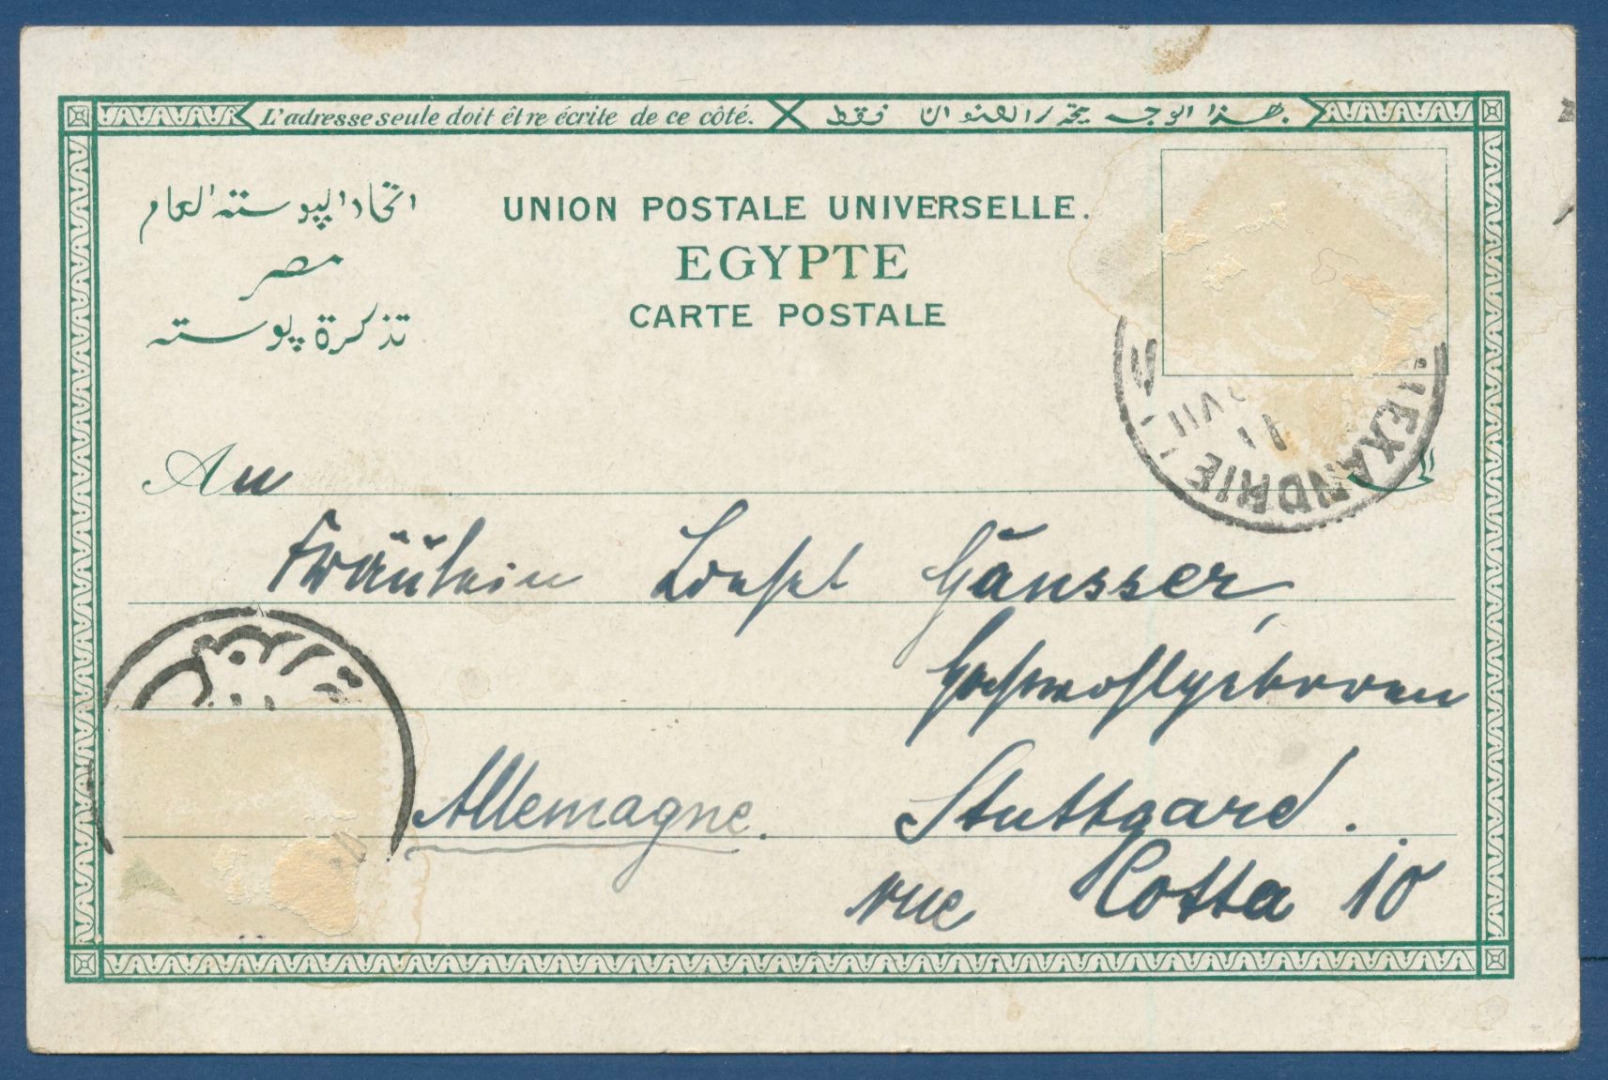 L'adresse seule doit être écrite de ce côté. هذا الوجه يحرر العنوان فقط
اتحاد البوسته العام
مصر
تذكرة بوسته
UNION POSTALE UNIVERSELLE.
EGYPTE
CARTE POSTALE
ALEXANDRIE
VII
An
Fräulein Gänsser,
Hochwohlgeboren
Allemagne. Stuttgard.
rue Cotta 10